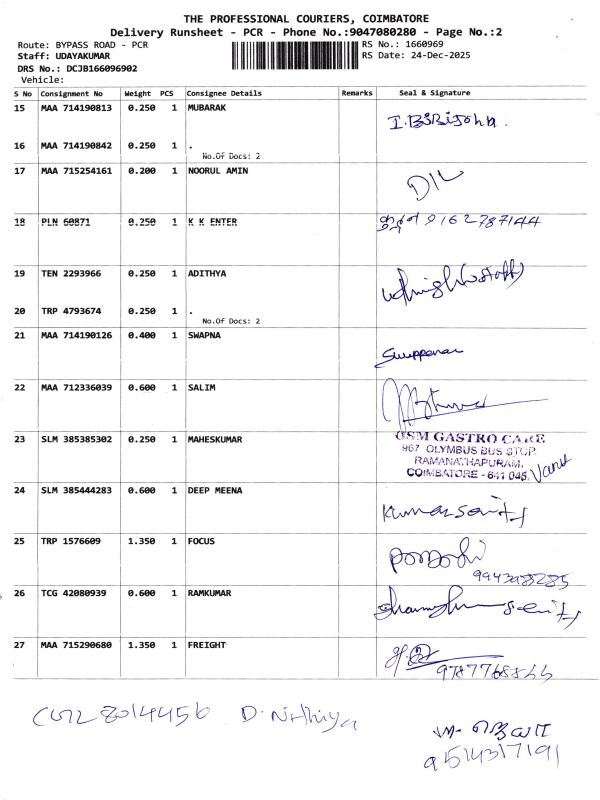 THE PROFESSIONAL COURIERS, COIMBATORE
Delivery Runsheet - PCR - Phone No.:9047080280 - Page No.:2
Route: BYPASS ROAD - PCR
RS No.: 1660969
Staff: UDAYAKUMAR
RS Date: 24-Dec-2025
DRS No.: DCJB166096902
Vehicle:
S No Consignment No Weight PCS Consignee Details Remarks Seal & Signature
15 MAA 714190813 0.250 1 MUBARAK
16 MAA 714190842 0.250 1 .
No.Of Docs: 2
17 MAA 715254161 0.200 1 NOORUL AMIN
18 PLN 60871 0.250 1 K K ENTER 9162787144
19 TEN 2293966 0.250 1 ADITHYA
20 TRP 4793674 0.250 1 .
No.Of Docs: 2
21 MAA 714190126 0.400 1 SWAPNA
22 MAA 712336039 0.600 1 SALIM
23 SLM 385385302 0.250 1 MAHESKUMAR GSM GASTRO CARE
967 OLYMBUS BUS STOP
RAMANATHAPURAM,
COIMBATORE - 641 045.
24 SLM 385444283 0.600 1 DEEP MEENA
25 TRP 1576609 1.350 1 FOCUS
26 TCG 42080939 0.600 1 RAMKUMAR
27 MAA 715290680 1.350 1 FREIGHT
8014456 D. Nithiya
9514317191